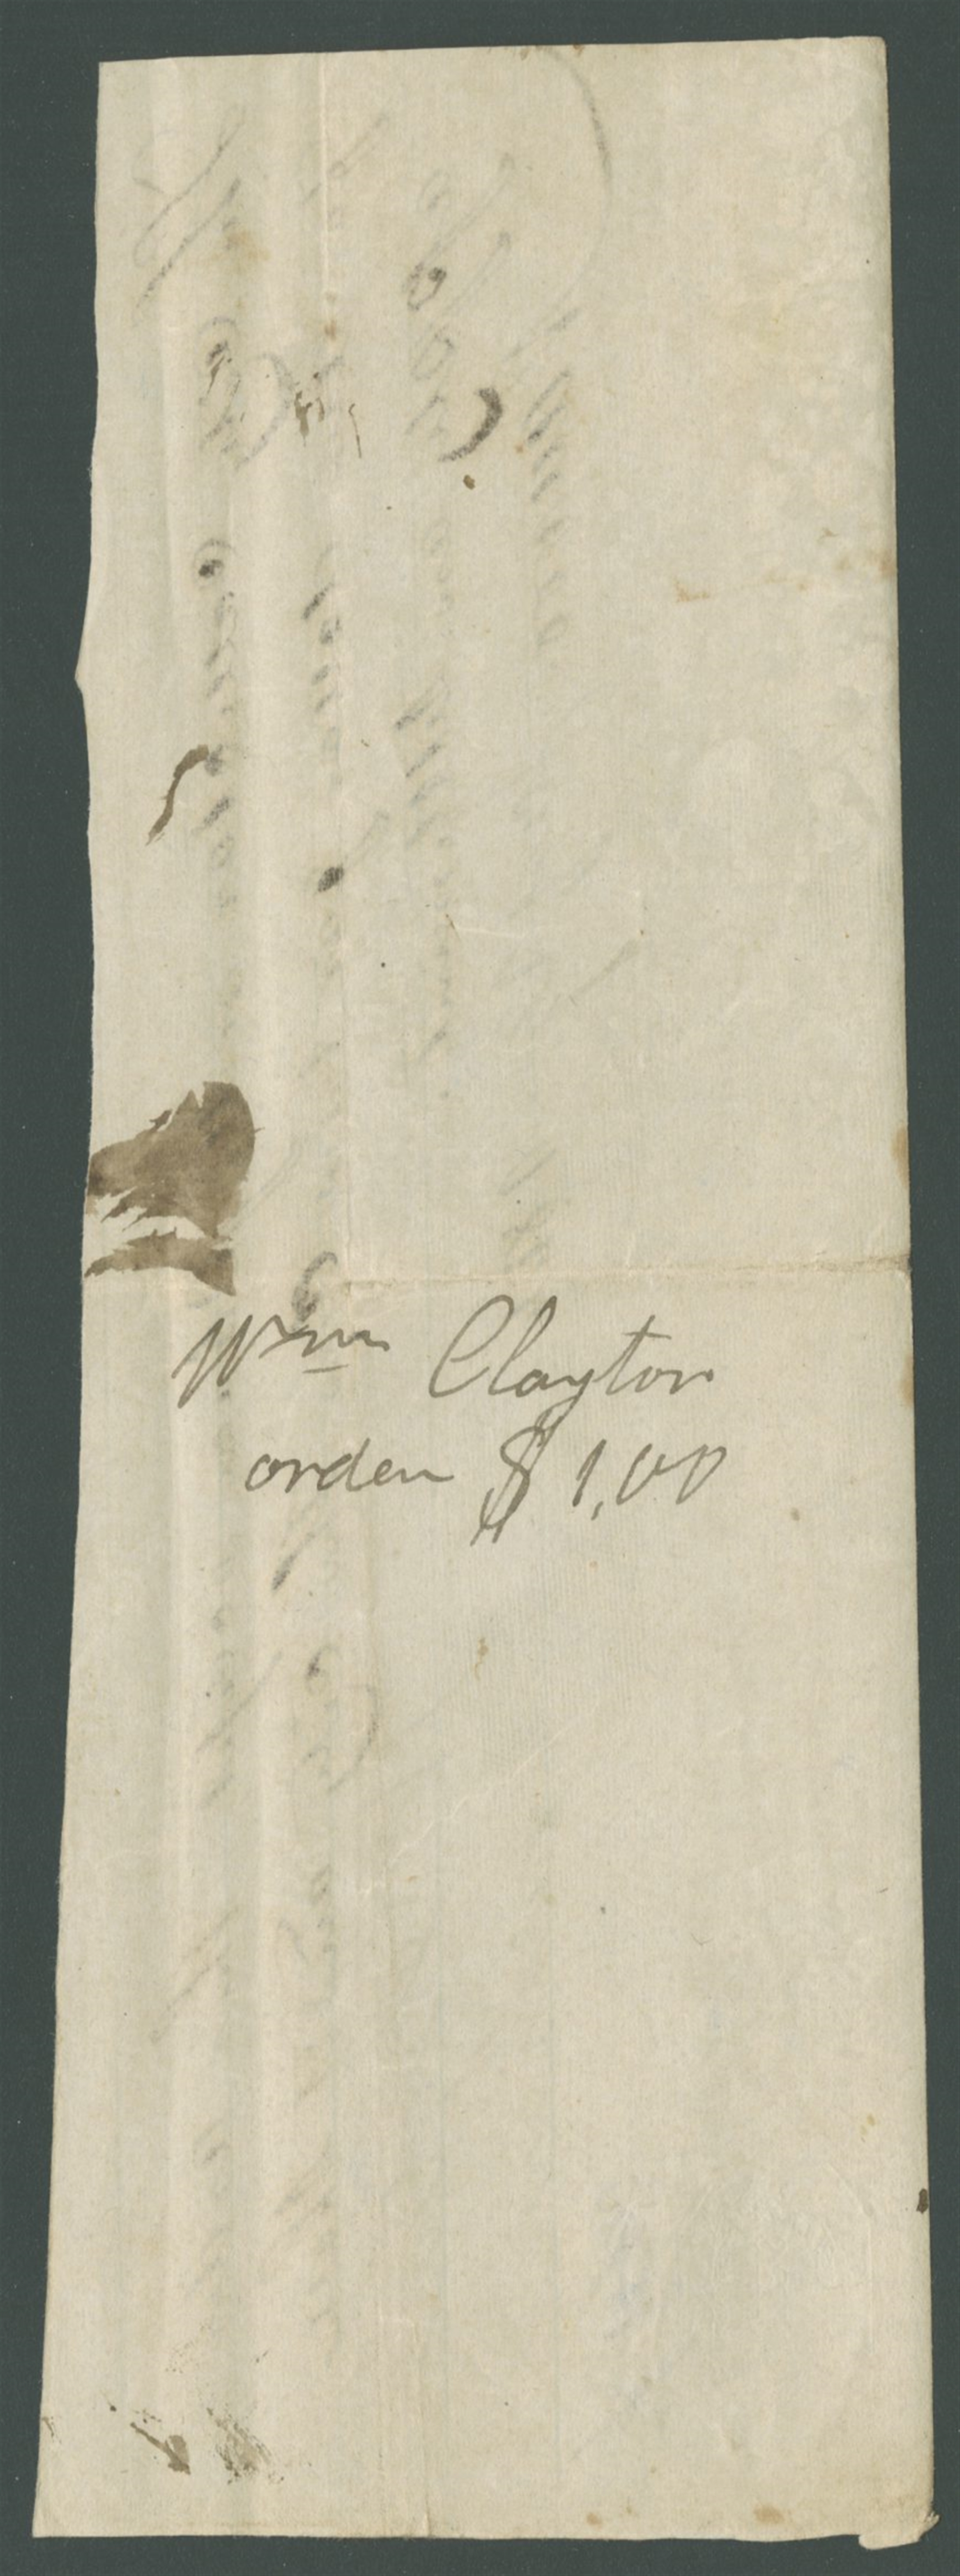 Wm Clayton
order $1,00